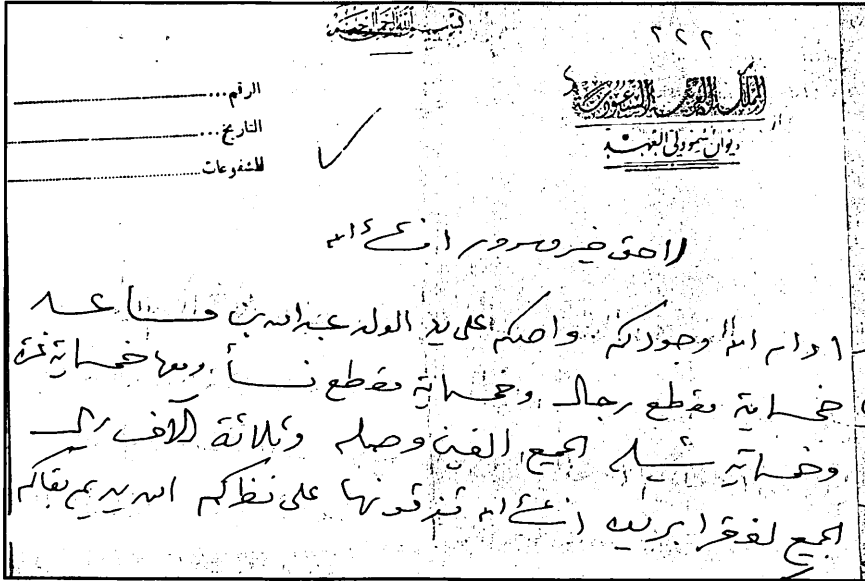 بسم الله الرحمن الرحيم
٢٢٢
المملكة العربية السعودية
ديوان سمو ولي العهد
الرقم
التاريخ
المشفوعات
خير وسرور انشاء الله
ادام الله وجودكم واصلكم على يد الولد عبدالله بن
خمسماية مقطع رجال وخمسماية مقطع نسا ومعها خمسماية غترة
وخمسماية شيله الجميع الفين وصله وثلاثة آلاف ريال
الجميع لفقرا بريده انشاء الله تفرقونها على نظركم الله يديم بقاكم